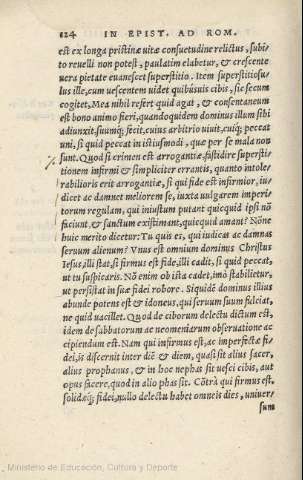 124 IN EPIST. AD ROM.
est ex longa pristinæ uitæ consuetudine relictus, subi-
to reuelli non potest, paulatim elabetur, & crescente
uera pietate euanescet superstitio. Item superstitiosu-
lus ille, cum uescentem uidet quibusuis cibis, sic secum
cogitet, Mea nihil refert quid agat, & consentaneum
est bono animo fieri, quandoquidem dominum illum sibi
adiunxit, suumq; fecit, cuius arbitrio uiuit, cuiq; peccat
uni, si quid peccat in istiusmodi, quæ per se mala non
sunt. Quod si crimen est arrogantiæ, fastidire supersti-
tionem infirmi & simpliciter errantis, quanto intole-
rabilioris erit arrogantiæ, si qui fide est infirmior, iu-
dicet ac damnet meliorem se, iuxta uulgarem imperi-
torum regulam, qui iniustum putant quicquid ipsi nõ
faciunt & sanctum existimant, quicquid amant? Nõne
huic merito dicetur: Tu quis es, qui iudicas ac damnas
seruum alienum? Vnus est omnium dominus Christus
Iesus, illi stat, si firmus est fide, illi cadit, si quid peccat,
ut tu suspicaris. Nõ enim ob ista cadet, imò stabilietur,
ut persistat in suæ fidei robore. Siquidē dominus illius
abunde potens est & idoneus, qui seruum suum fulciat,
ne quid uacillet. Quod de ciborum delectu dictum est,
idem de sabbatorum ac neomeniarum obseruatione ac
cipiendum est. Nam qui infirmus est, ac imperfectæ fi-
dei, is discernit inter diē & diem, quasi sit alius sacer,
alius prophanus, & in hoc nephas sit uesci cibis, aut
opus facere, quod in alio phas sit. Cõtrà qui firmus est,
solidæq; fidei, nullo delectu habet omneis dies, uniuer-
sum
Ministerio de Educación, Cultura y Deporte